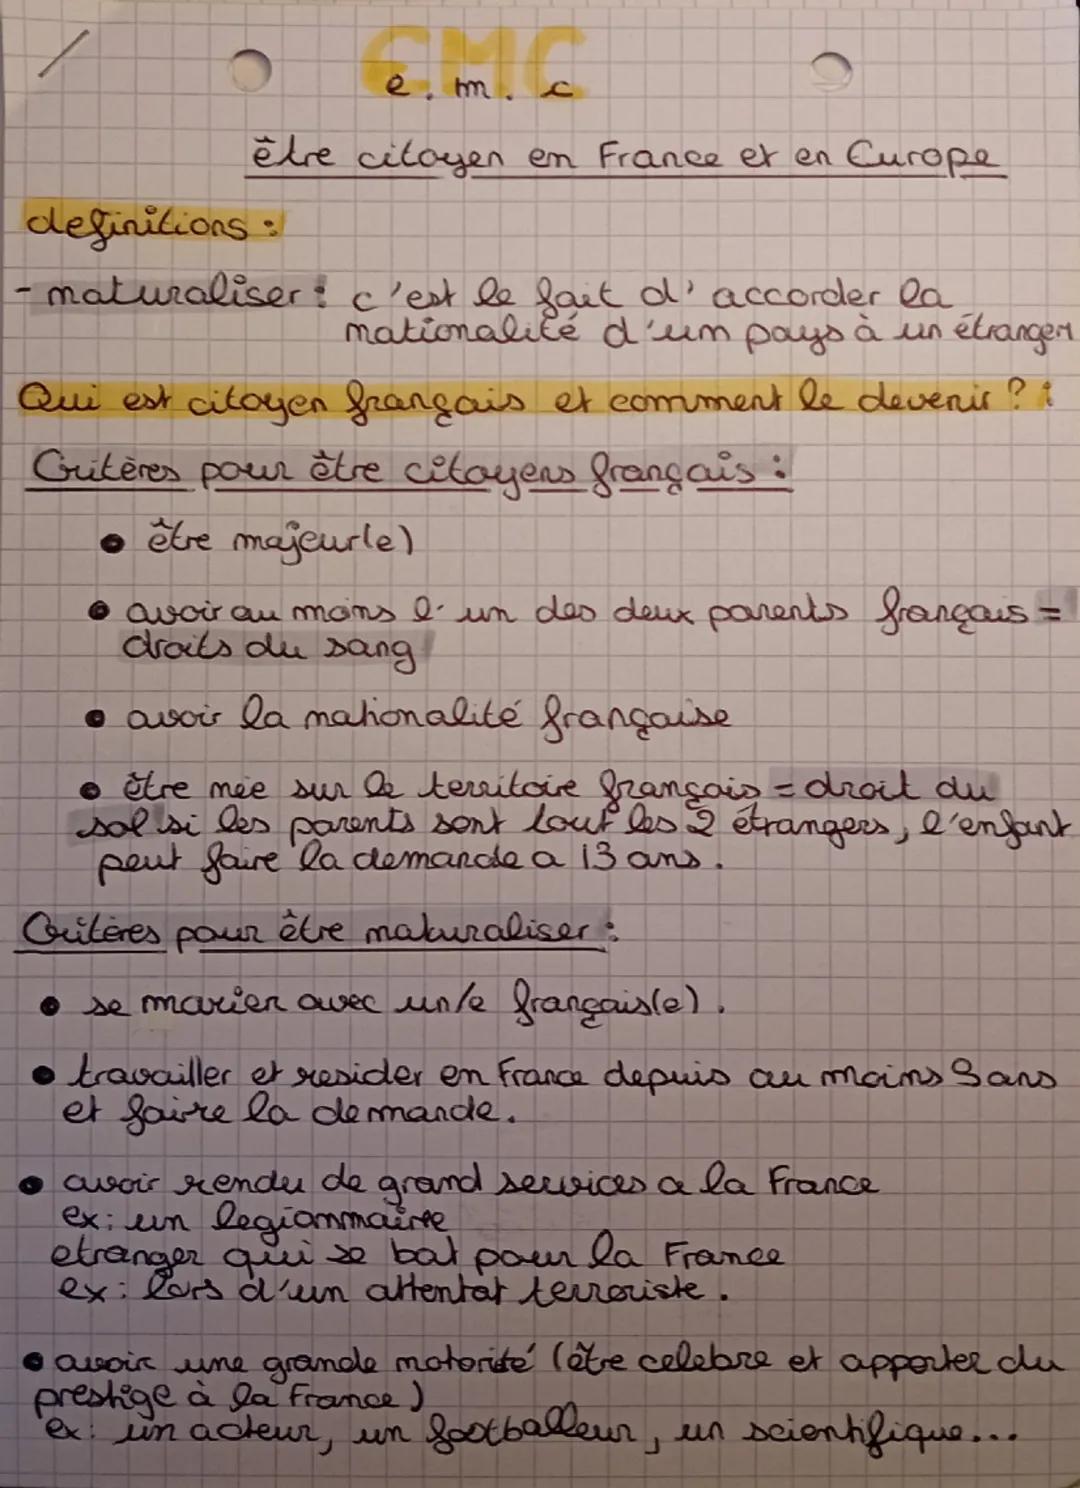 EMC
e. m. c
être citoyen en France et en Europe
definitions :
- naturaliser : c'est le fait d'accorder la
nationalité d'un pays à un étranger
Qui est citoyen français et comment le devenir ? :
Critères pour être citoyens français :
• être majeur(e)
• avoir au moins l'un des deux parents français =
droits du sang
• avoir la nationalité française
• être née sur le territoire français = droit du
sol si les parents sont tout les 2 étrangers, l'enfant
peut faire la demande a 13 ans.
Critères pour être naturaliser :
• se marier avec un/e français(e).
• travailler et resider en France depuis au moins 3 ans
et faire la demande.
• avoir rendu de grand services a la France
ex : un legionnaire
etranger qui se bat pour la France
ex : lors d'un attentat terroriste.
• avoir une grande notorité (être celebre et apporter du
prestige à la France)
ex : un acteur, un footballeur, un scientifique...